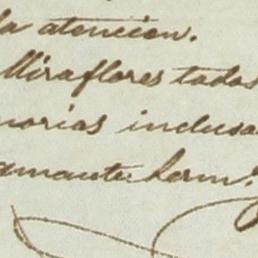 la atencion.
Miraflores todos
morias inclusa
amante herm.